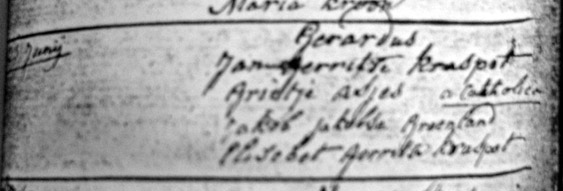 Maria kroon
Gerardus
Junij
Jan Gerritse kraspot
Grietje asjes a Catholica
Jakob jakobse Groenland
Elisebet Gerritse kraspot